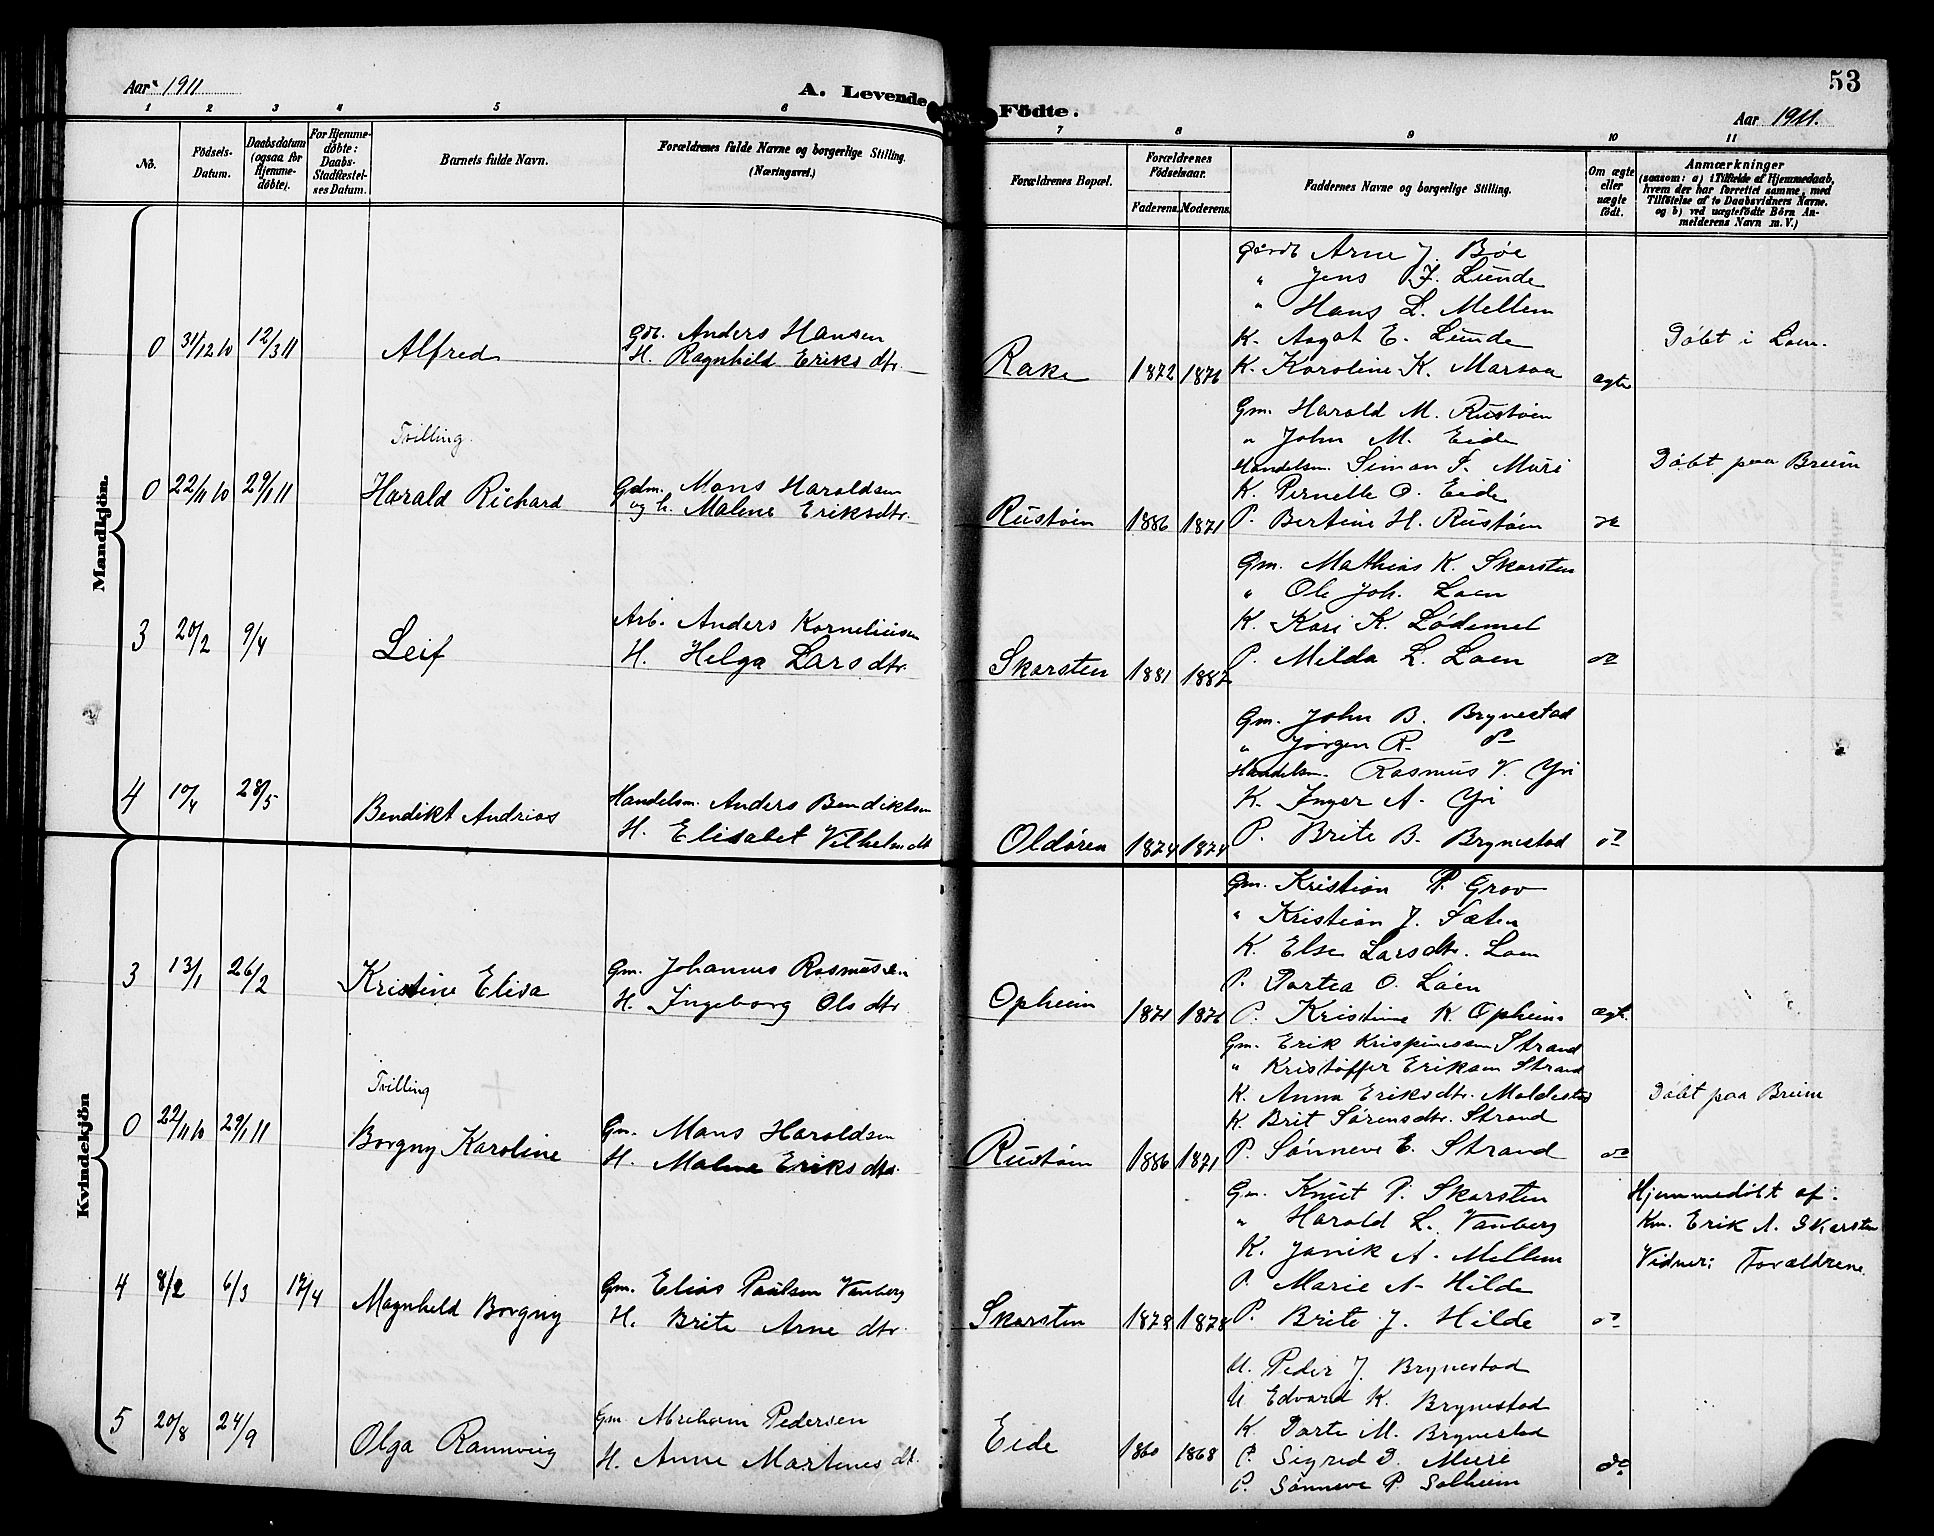 Aar 1911
A. Levende Födte.
53
Aar 1911.
1 2 3 4 5 6 7 8 9 10 11
No.
Födsels-Datum.
Daabsdatum (ogsaa for Hjemme-døbte).
For Hjemme-døbte: Daabs-Stadfæstel-ses Datum.
Barnets fulde Navn.
Forældrenes fulde Navne og borgerlige Stilling. (Næringsvei.)
Forældrenes Bopæl.
Forældrenes Födselsaar.
Faderens. Moderens.
Faddernes Navne og borgerlige Stilling.
Om ægte eller uægte født.
Anmærkninger
(saasom: a) i Tilfælde af Hjemmedaab, hvem der har forrettet samme, med Tilföielse af to Daabsvidners Navne. og b) ved uægtefödte Börn An-melderens Navn m. V.)
Mandkjön.
0 31/12 10 12/3 11 Alfred
Gbr. Anders Hansen
H. Ragnhild Eriksdtr.
Rake 1872 1876
Gardb Arne J. Bøe
" Jens J. Lunde
" Hans L. Mellem
K. Aagot E. Lunde
K. Karoline K. Marsaa
ægte
Døbt i Loen.
Tvilling
0 22/11 10 29/1 11 Harald Richard
Gdm. Mons Haraldsen
og h. Malene Eriksdtr.
Rustøen 1886 1871
Gm. Harald M. Rustøen
" John M. Eide
Handelsm. Simon S. Muri
K. Pernelle O. Eide
P. Bertine H. Rustøen
do
Døbt paa Breim
3 20/2 9/4 Leif
Arb. Anders Korneliusen
H. Helga Larsdtr.
Skarsten 1881 1887
Gm. Mathias K. Skarsten
" Ole Joh. Loen
K. Kari K. Lødemel
P. Milda L. Loen
do
4 10/4 28/5 Bendikt Andrias
Handelsm. Anders Bendiktsen
H. Elisabet Vilhelmdt
Oldøren 1874 1874
Gm. John B. Brynestad
" Jørgen R. do
Handelsm. Rasmus V. Yri
K. Inger A. Yri
P. Brite B. Brynestad
do
Kvindekjön
3 13/1 26/2 Kristine Elisa
Gm. Johannes Rasmussen
H. Ingeborg Olsdtr
Opheim 1871 1876
Gm. Kristian P. Grov
" Kristian J. Sæten
K. Else Larsdtr. Loen
P. Dortea O. Loen
P. Kristine K. Opheim
ægt.
Tvilling
0 22/11 10 29/1 11 Borgny Karoline
Gm. Mons Haraldsen
H. Malene Eriksdtr.
Rustøen 1886 1871
Gm. Erik Krispinussen Strand
" Kristoffer Eriksen Strand
K. Anna Eriksdtr. Moldestad
K. Brit Sørensdtr. Strand
P. Sønneve E. Strand
do
Døbt paa Breim
4 8/2 6/3 17/4 Magnhild Borgny
Gm. Elias Paulsen Vanberg
H. Brite Arnedtr.
Skarsten 1878 1878
Gm. Knut P. Skarsten
" Harald L. Vanberg
K. Janik A. Mellem
P. Marie A. Hilde
P. Brite J. Hilde
do
Hjemmedøbt af.
Km. Erik A. Skarsten
Vidner: Forældrene.
5 20/8 24/9 Olga Rannveig
Gm Abraham Pedersen
H. Anne Martinesdt.
Eide 1860 1868
U. Peder J. Brynestad
U. Edvard K. Brynestad
K. Dorte M. Brynestad
P. Sigrid D. Muri
P. Sønneve P. Solheim
do